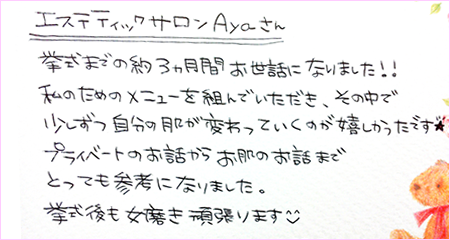 エステティックサロンAyaさん
挙式までの約3ヵ月間お世話になりました!!
私のためのメニューを組んでいただき、その中で
少しずつ自分の肌が変わっていくのが嬉しかったです★
プライベートのお話からお肌のお話まで
とっても参考になりました。
挙式後も女磨き頑張ります☺